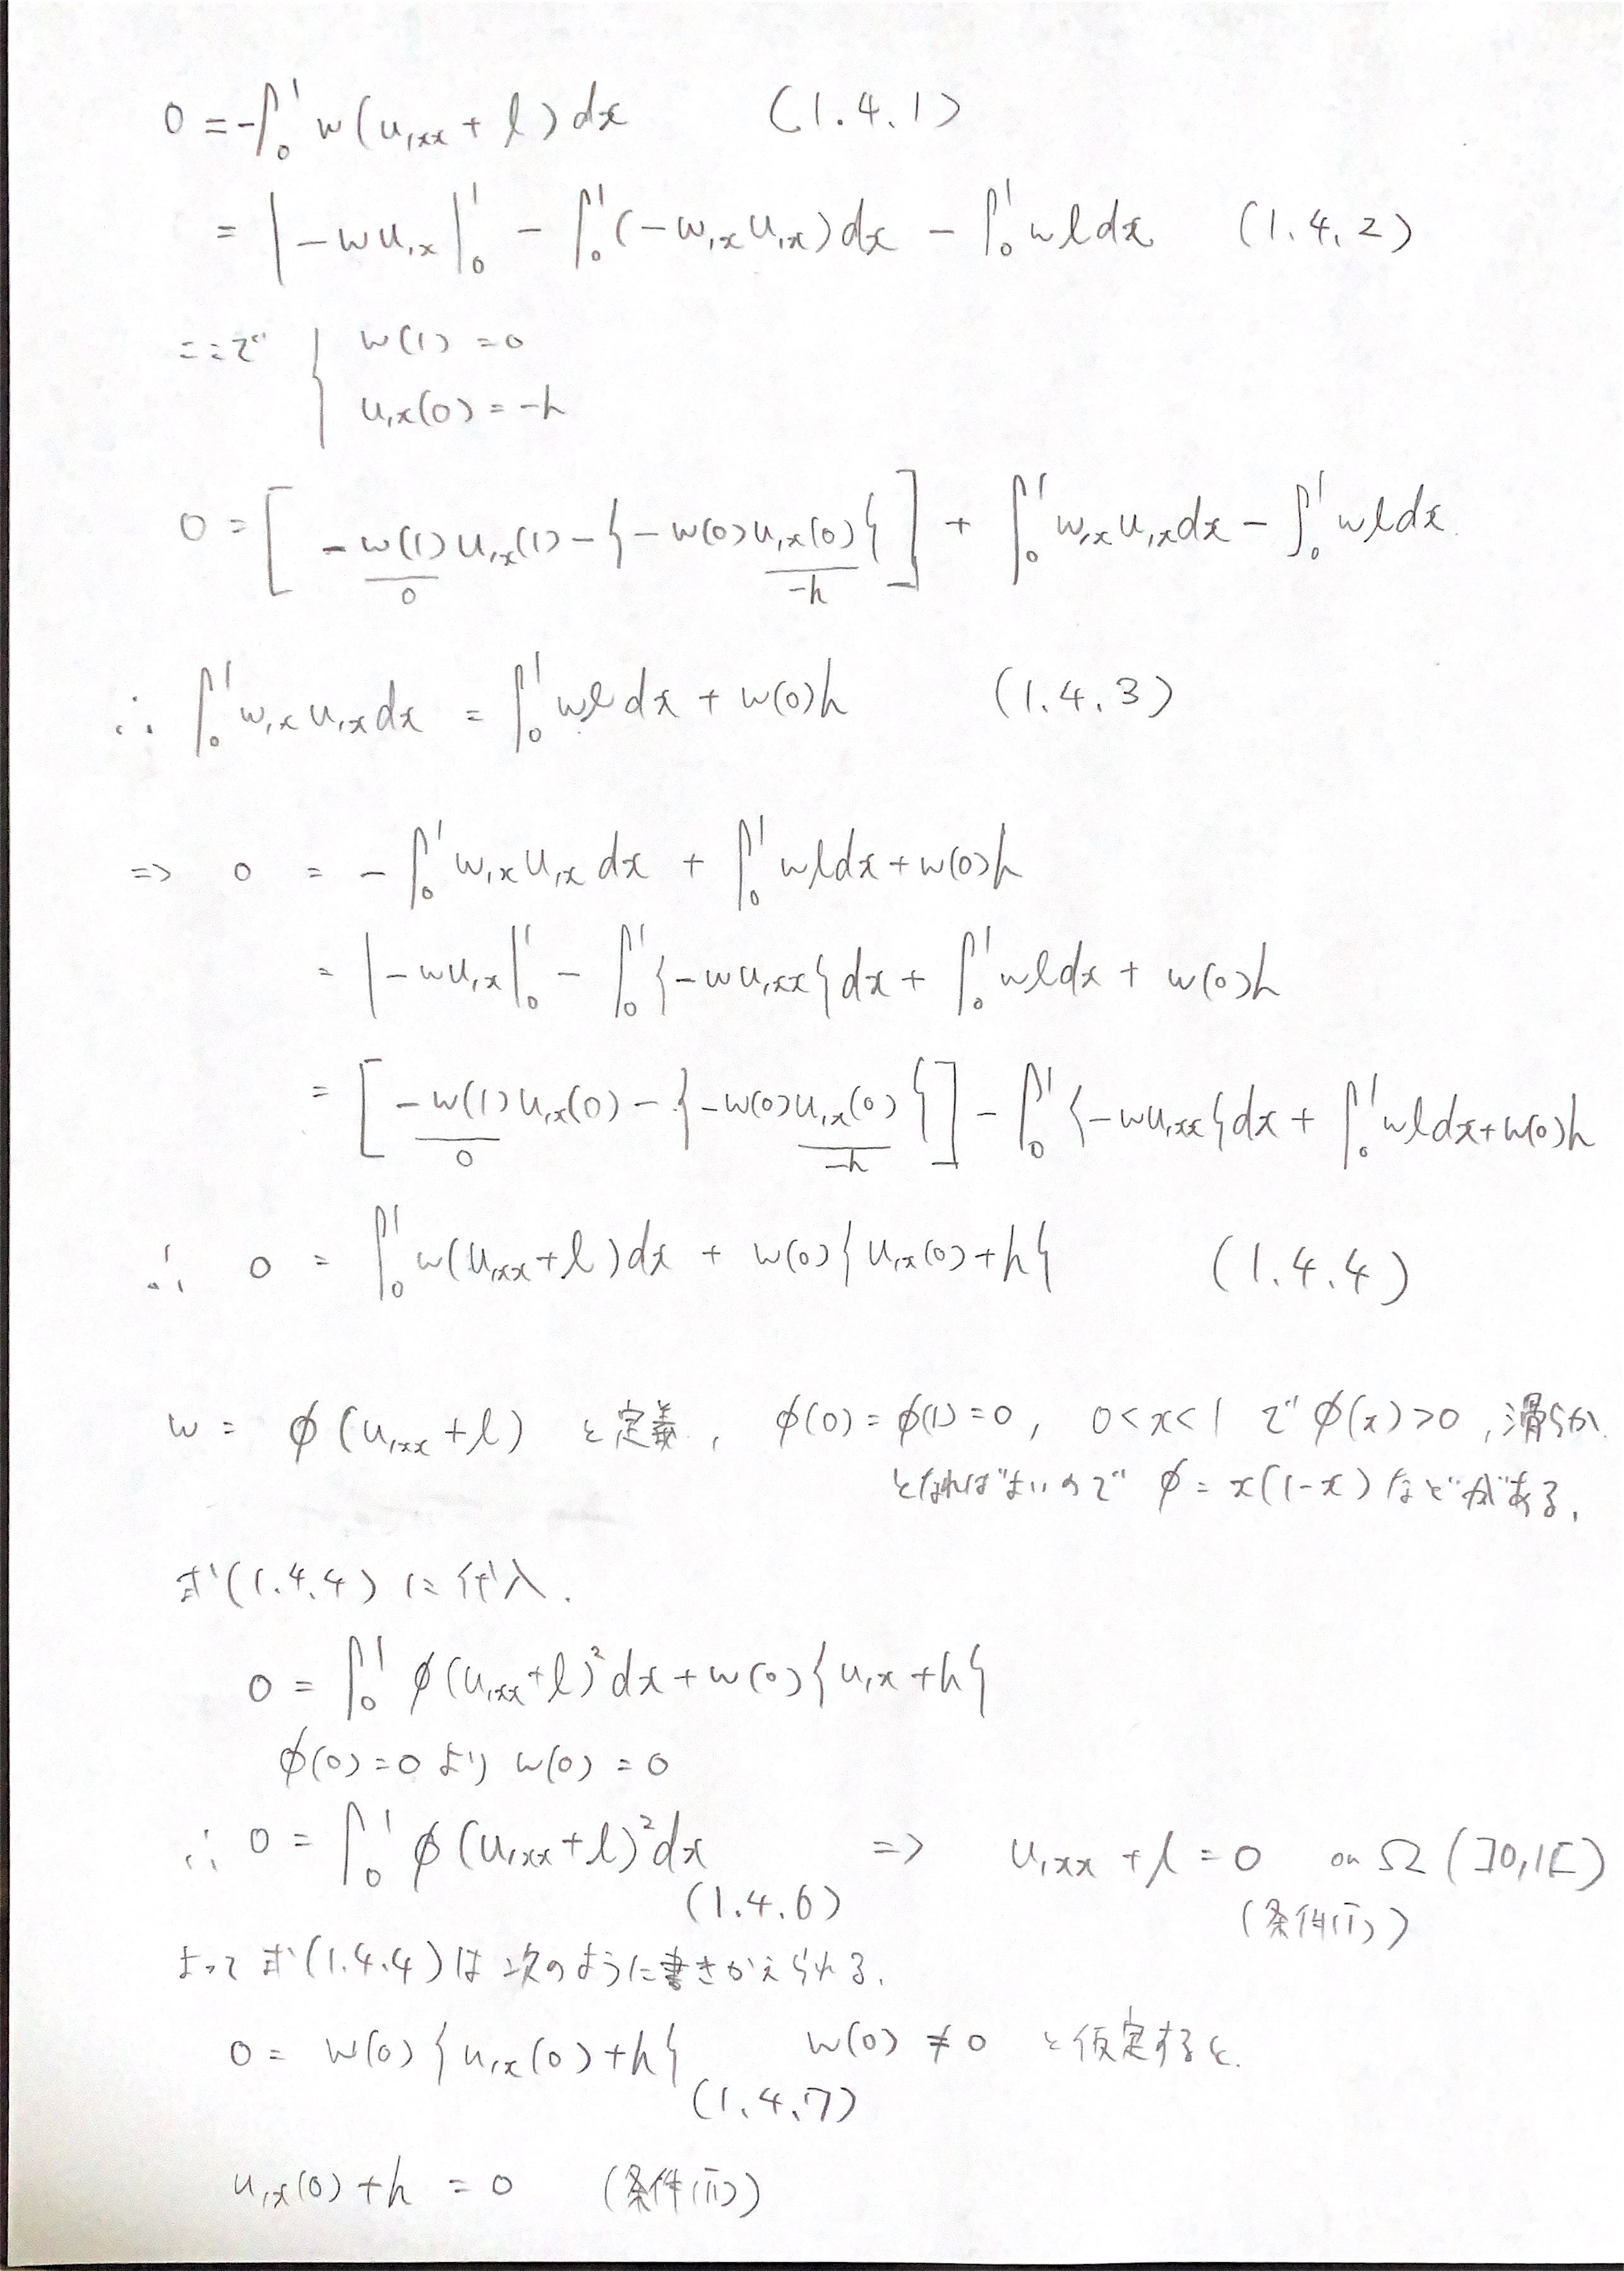 0 = -∫₀¹ w(u,xx + l)dx (1.4.1)
= |-wu,x|₀¹ - ∫₀¹(-w,x u,x)dx - ∫₀¹ wldx (1.4.2)
ここで { w(1) = 0
u,x(0) = -h
0 = [-w(1)u,x(1) - {-w(0)u,x(0)}] + ∫₀¹ w,x u,x dx - ∫₀¹ wldx
0 -h
∴ ∫₀¹ w,x u,x dx = ∫₀¹ wldx + w(0)h (1.4.3)
=> 0 = -∫₀¹ w,x u,x dx + ∫₀¹ wldx + w(0)h
= |-wu,x|₀¹ - ∫₀¹{-wu,xx}dx + ∫₀¹ wldx + w(0)h
= [-w(1)u,x(0) - {-w(0)u,x(0)}] - ∫₀¹{-wu,xx}dx + ∫₀¹ wldx + w(0)h
0 -h
∴ 0 = ∫₀¹ w(u,xx + l)dx + w(0){u,x(0) + h} (1.4.4)
w = φ(u,xx + l) と定義, φ(0) = φ(1) = 0, 0 < x < 1 で φ(x) > 0, 滑らか
となればよいので φ = x(1-x) などがある.
式(1.4.4)に代入.
0 = ∫₀¹ φ(u,xx + l)²dx + w(0){u,x + h}
φ(0) = 0 より w(0) = 0
∴ 0 = ∫₀¹ φ(u,xx + l)²dx => u,xx + l = 0 on Ω (]0,1[)
(1.4.6) (条件(i))
よって式(1.4.4)は次のように書きかえられる.
0 = w(0){u,x(0) + h} w(0) ≠ 0 と仮定すると.
(1.4.7)
u,x(0) + h = 0 (条件(ii))